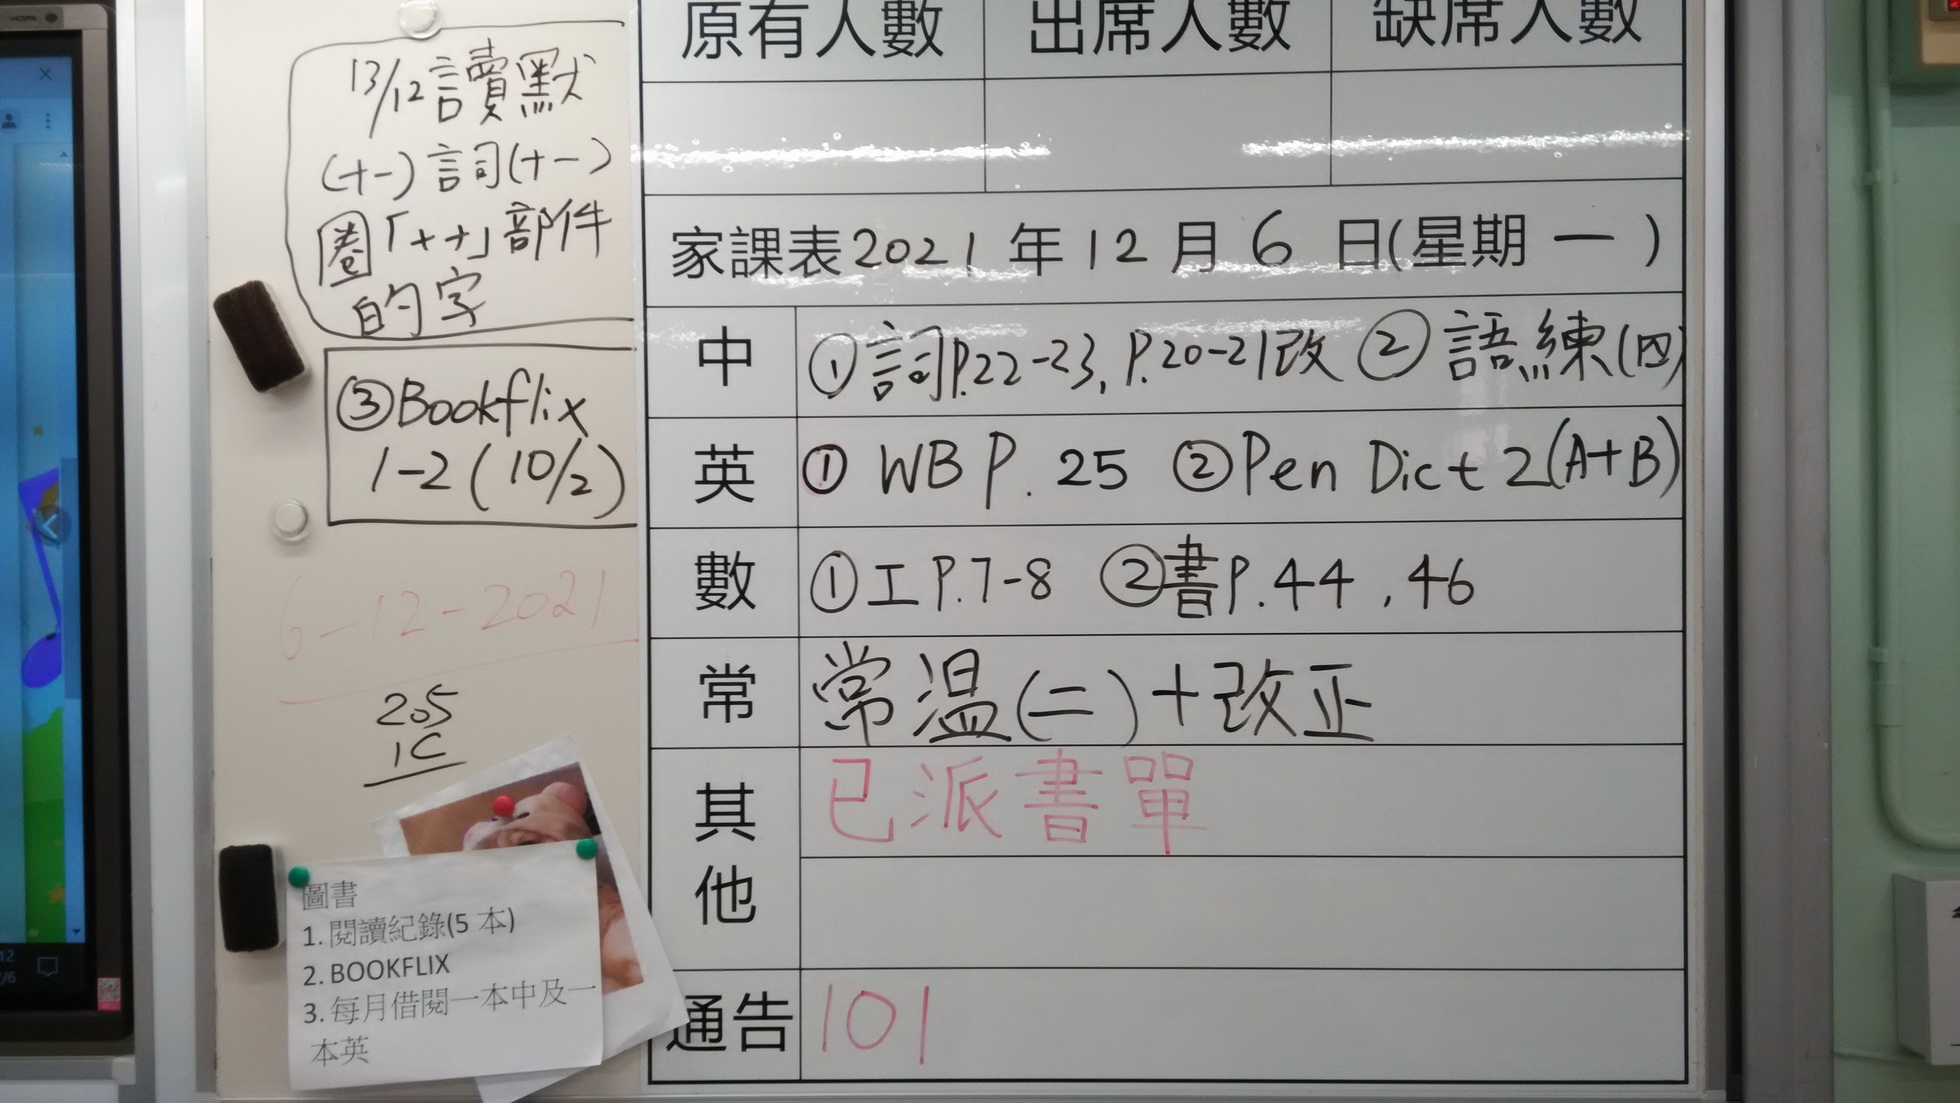 13/12 讀默
(十一) 詞(十一)
圈「艹」部件
的字
③Bookflix
1-2(10/2)
6-12-2021
205
1C
圖書
1. 閱讀紀錄(5 本)
2. BOOKFLIX
3. 每月借閱一本中及一
本英
原有人數 出席人數 缺席人數
家課表2021 年 12 月 6 日(星期 一 )
中 ①詞P.22-23, P.20-21改 ②語練(四)
英 ① WB P. 25 ②Pen Dict 2(A+B)
數 ①工P.7-8 ②書P.44 , 46
常 常温(二)+改正
其他 已派書單
通告 101